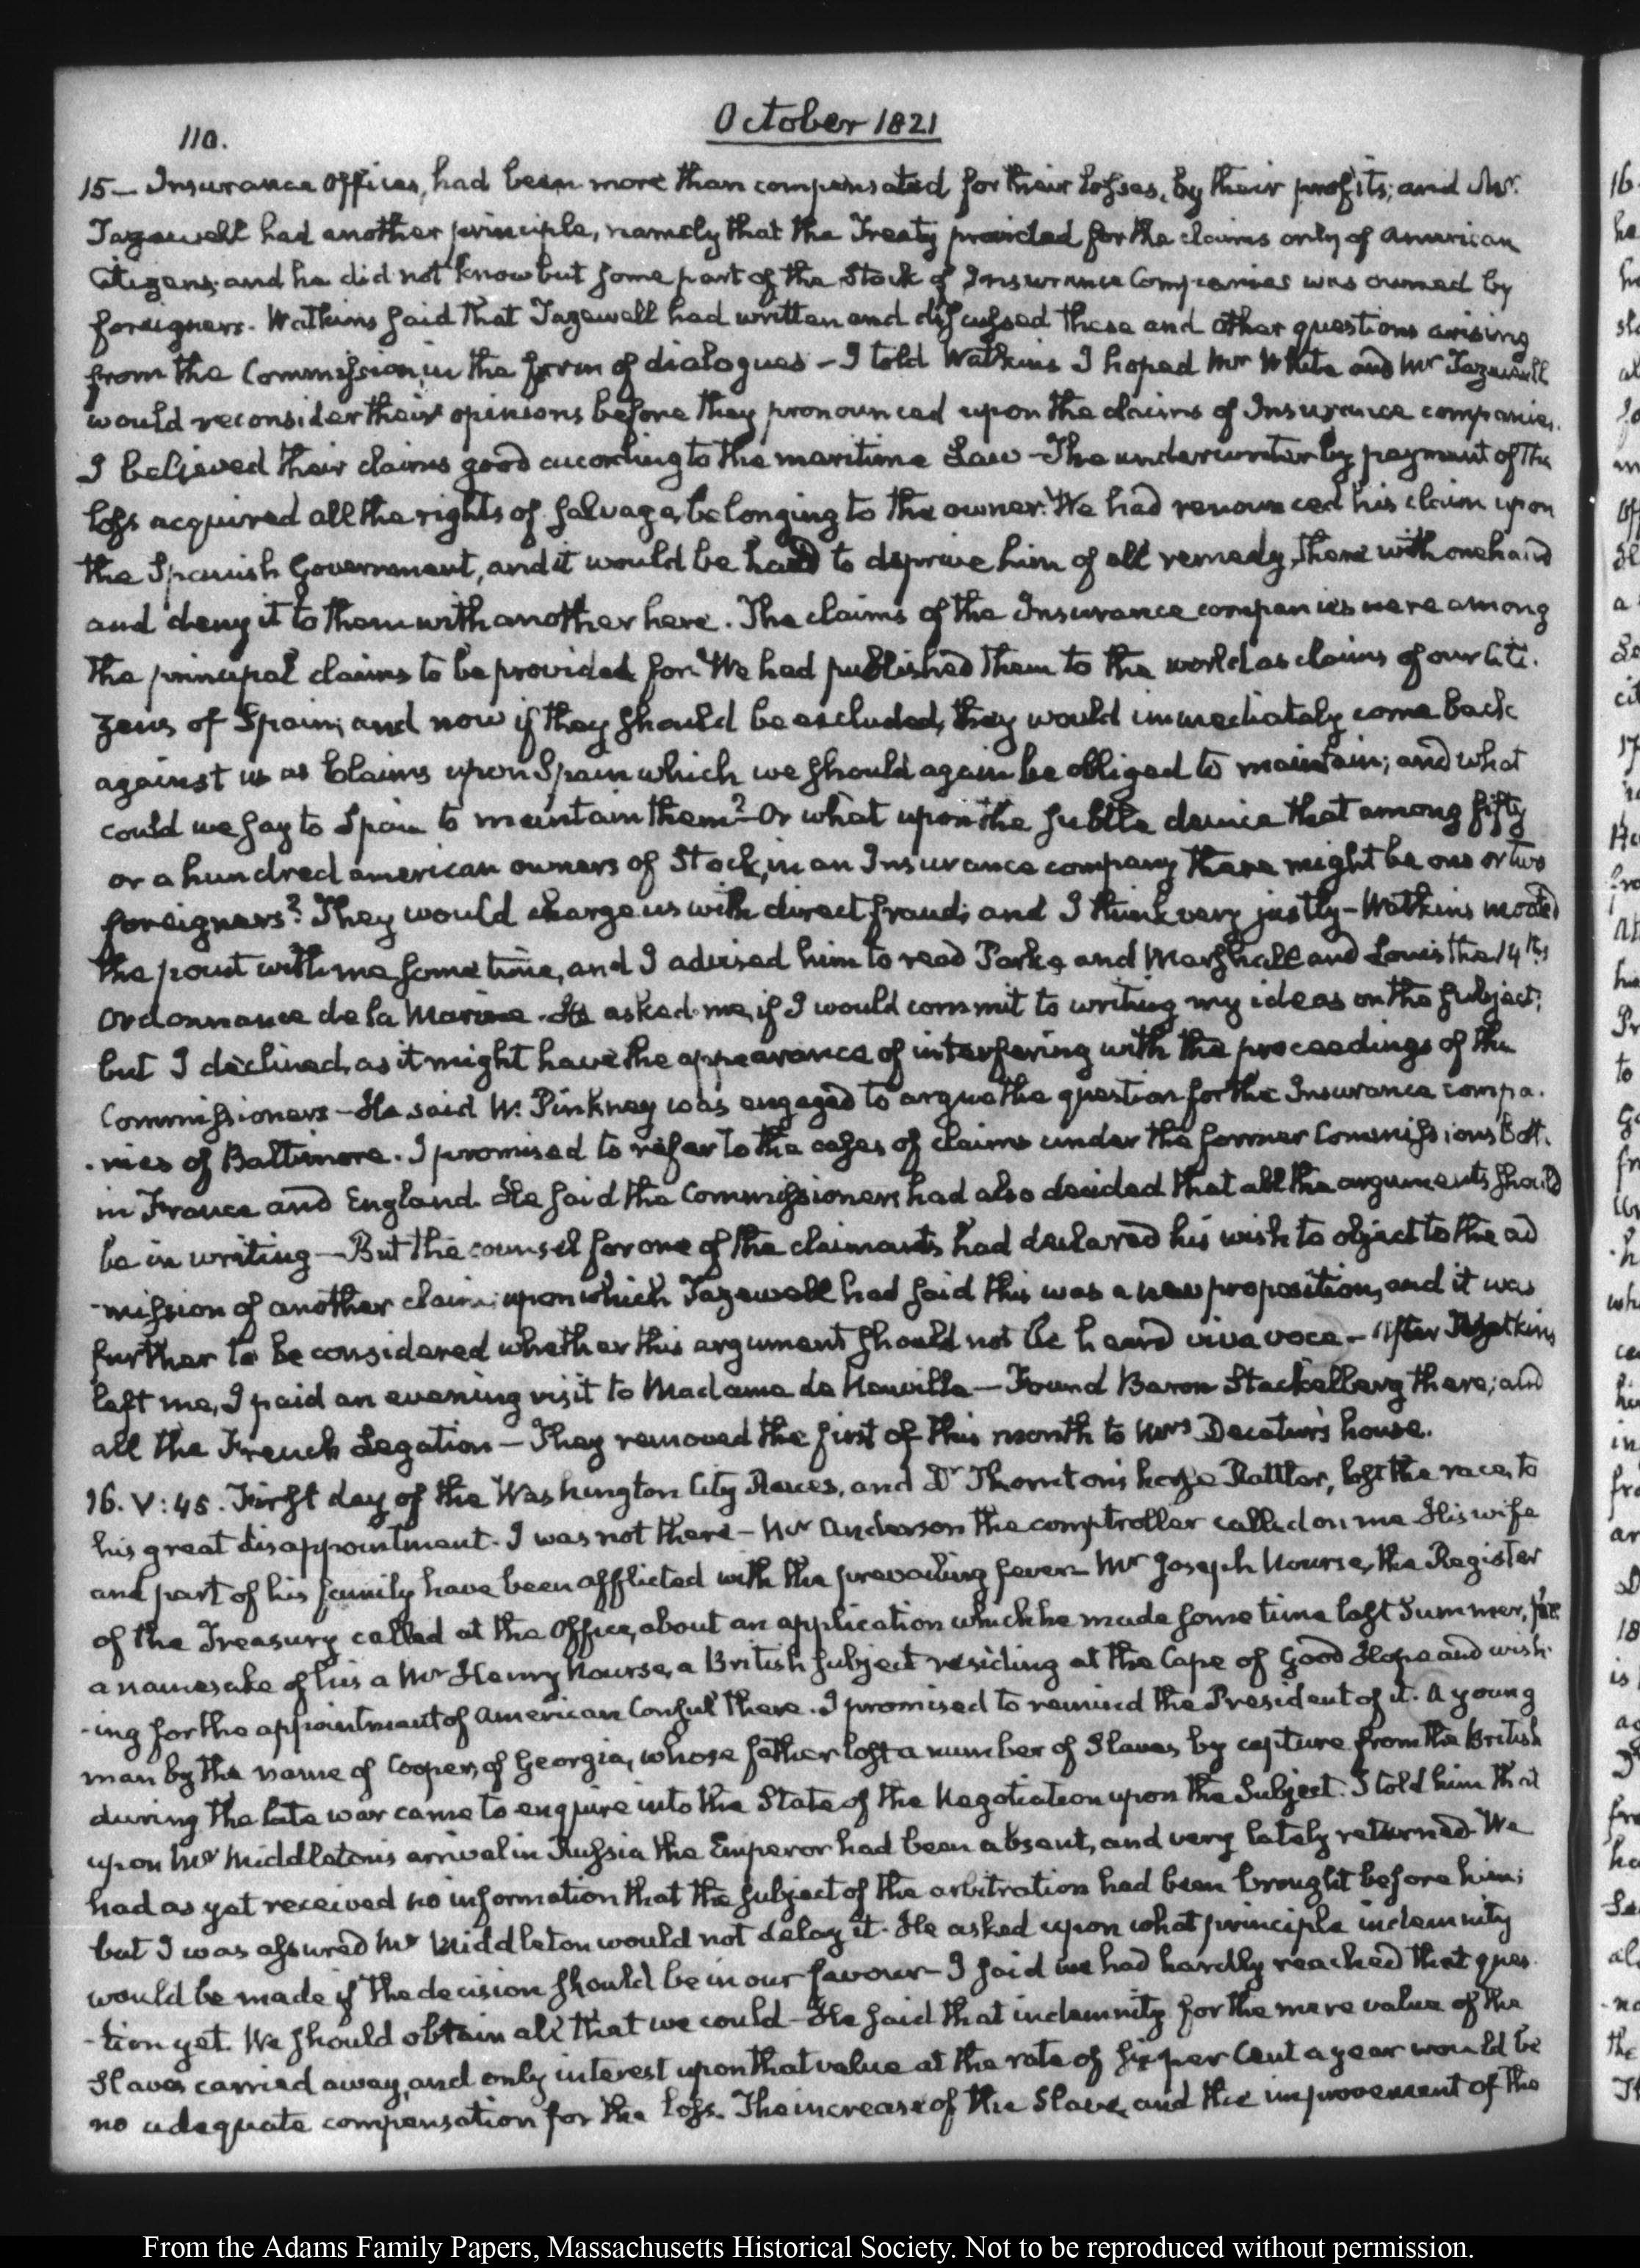 110.
October 1821
15— Insurance Offices, had been more than compensated for their losses, by their profits; and Mr.
Tazewell had another principle, namely that the Treaty provided for the claims only of American
Citizens, and he did not know but some part of the Stock of Insurance Companies was owned by
foreigners. Watkins said that Tazewell had written and discussed these and other questions arising
from the Commission, in the form of dialogues — I told Watkins I hoped Mr White and Mr Tazewell
would reconsider their opinions before they pronounced upon the claims of Insurance companies.
I believed their claims good according to the maritime Law — The underwriter by payment of the
loss acquired all the rights of salvage, belonging to the owner. We had renounced his claim upon
the Spanish Government, and it would be hard to deprive him of all remedy there with one hand
and deny it to them with another here. The claims of the Insurance companies were among
the principal claims to be provided for. We had published them to the world as claims of our Citi-
zens of Spain; and now if they should be excluded, they would immediately come back
against us as Claims upon Spain which we should again be obliged to maintain; and what
could we say to Spain to maintain them? Or what upon the subtle device that among fifty
or a hundred american owners of Stock, in an Insurance company there might be one or two
foreigners? They would charge us with direct fraud; and I think very justly — Watkins mooted
the point with me some time, and I advised him to read Parke, and Marshall and Louis the 14th's
Ordonnance de la Marine. He asked me, if I would commit to writing my ideas on the subject;
but I declined, as it might have the appearance of interfering with the proceedings of the
Commissioners — He said W. Pinkney was engaged to argue the question for the Insurance compa-
-nies of Baltimore. I promised to refer to the cases of claims under the former Commissions both
in France and England. He said the Commissioners had also decided that all the arguments should
be in writing — But the counsel for one of the claimants had declared his wish to object to the ad
-mission of another claim; upon which Tazewell had said this was a new proposition, and it was
further to be considered whether this argument should not be heard viva voce — After Watkins
left me, I paid an evening visit to Madame de Neuville — Found Baron Stackelberg there; and
all the French Legation — They removed the first of this month to Mrs Decatur's house.
16. V:45. First day of the Washington City Races, and Dr Thornton's horse Rattler, lost the race, to
his great disappointment. I was not there — Mr Anderson the comptroller called on me. His wife
and part of his family have been afflicted with the prevailing fever — Mr Joseph Nourse, the Register
of the Treasury called at the Office, about an application which he made some time last Summer, for
a namesake of his a Mr Henry Nourse, a British subject residing at the Cape of Good Hope and wish-
-ing for the appointment of American Consul there. I promised to remind the President of it. A young
man by the name of Cooper, of Georgia, whose father lost a number of Slaves by capture from the British
during the late war came to enquire into the State of the Negotiation upon the Subject. I told him that
upon Mr Middleton's arrival in Russia the Emperor had been absent, and very lately returned. We
had as yet received no information that the subject of the arbitration had been brought before him;
but I was assured Mr Middleton would not delay it. He asked upon what principle indemnity
would be made if the decision should be in our favour — I said we had hardly reached that ques-
-tion yet. We should obtain all that we could — He said that indemnity for the mere value of the
Slaves carried away, and only interest upon that value at the rate of six per Cent a year would be
no adequate compensation for the loss. The increase of the Slaves, and the improvement of the
From the Adams Family Papers, Massachusetts Historical Society. Not to be reproduced without permission.